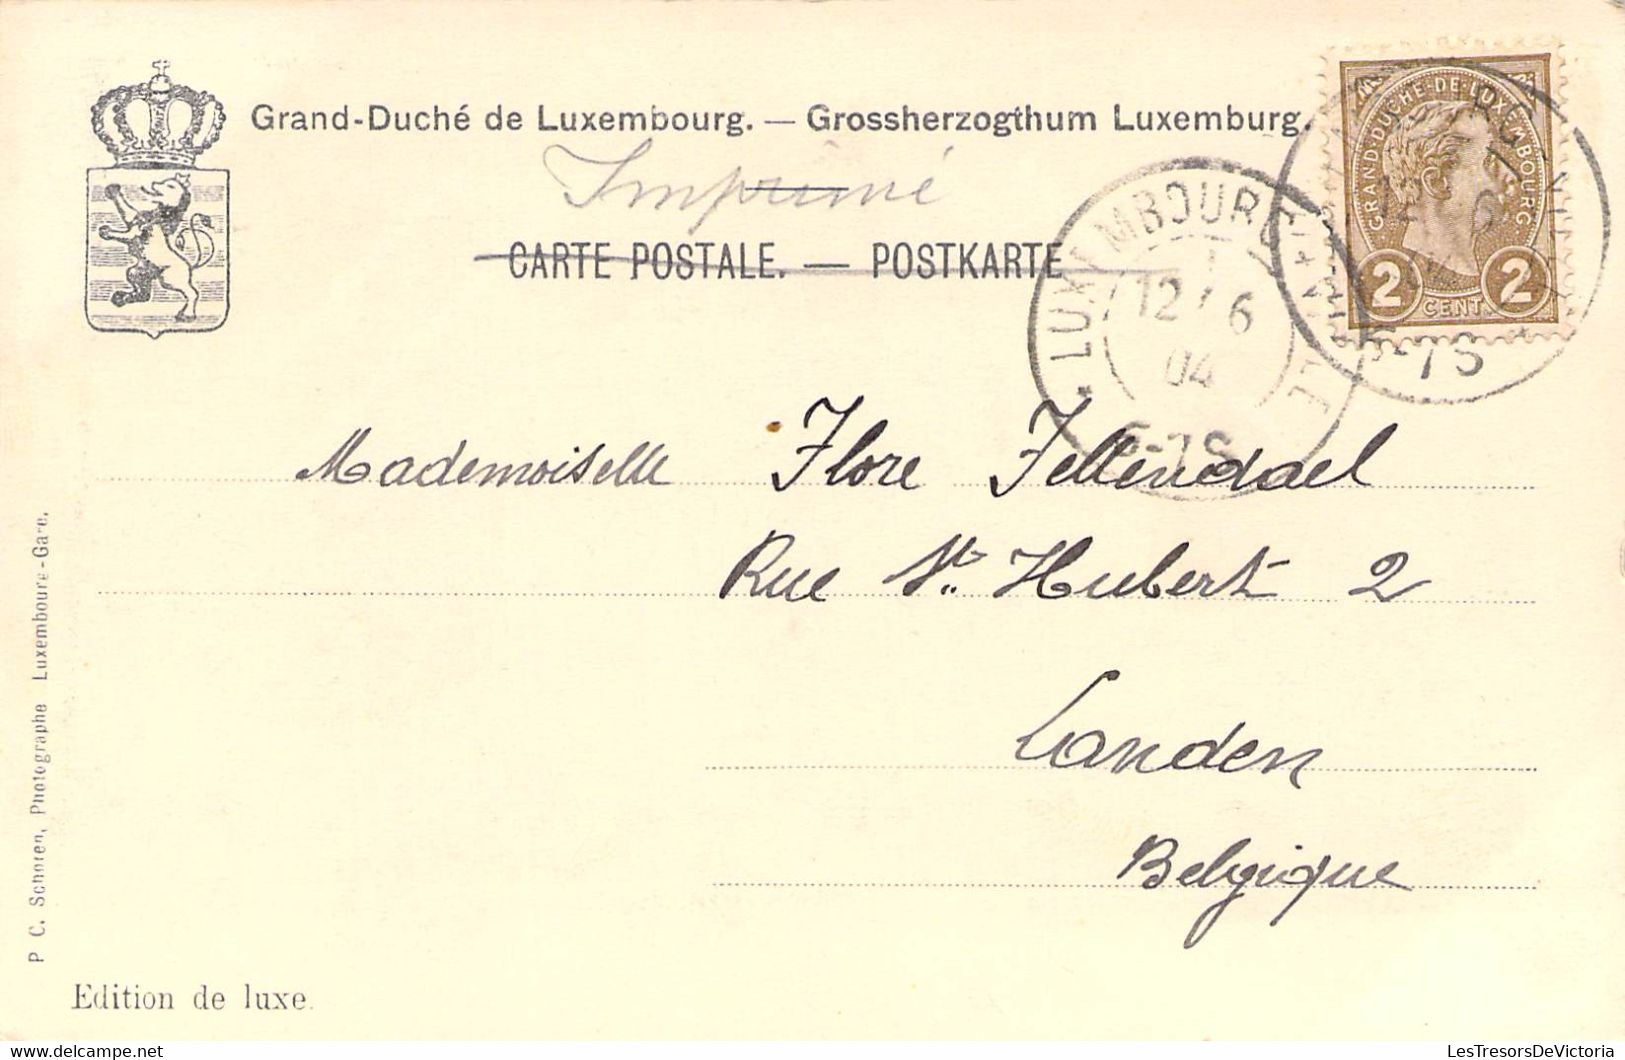 Grand-Duché de Luxembourg. — Grossherzogthum Luxemburg.
Imprimé
CARTE POSTALE. — POSTKARTE
GRAND-DUCHÉ-DE-LUXEMBOURG
2 CENT. 2
LUXEMBOURG VILLE
12 6
04
6-7S
-7S
Mademoiselle Flore Fellendael
Rue St. Hubert 2
Landen
Belgique
P. C. Schoren, Photographe Luxembourg-Gare.
Edition de luxe.
LesTresorsDeVictoria